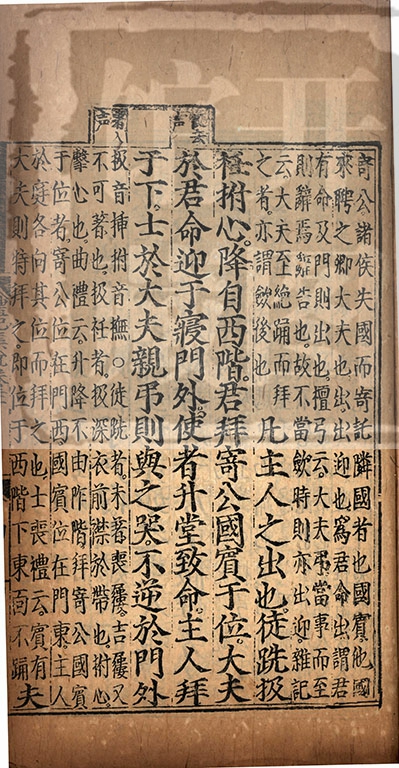 寄公諸侯失國而寄託隣國者也國賓他國
來聘之卿大夫也出出迎也爲君命出謂君
有命及門則出也檀弓云大夫弔當事而至
則辭焉辭告也故不當斂時則亦出迎雜記
云大夫至絶踊而拜
之者亦謂斂後也
凡主人之出也。徒跣扱
衽拊心。降自西階。君拜寄公國賓于位。大夫
於君命迎于寢門外。使者升堂致命。主人拜
于下。士於大夫親弔則與之哭不逆於門外
扱音挿拊音撫○徒跣者未著喪屨吉屨又
不可著也扱衽者扱深衣前襟於帶也拊心
擊心也曲禮云升降不由阼階拜寄公國賓
于位者寄公位在門西國賓位在門東主人
於庭各向其位而拜之也士喪禮云賓有
大夫則特拜之即位于西階下東面不踊
夫